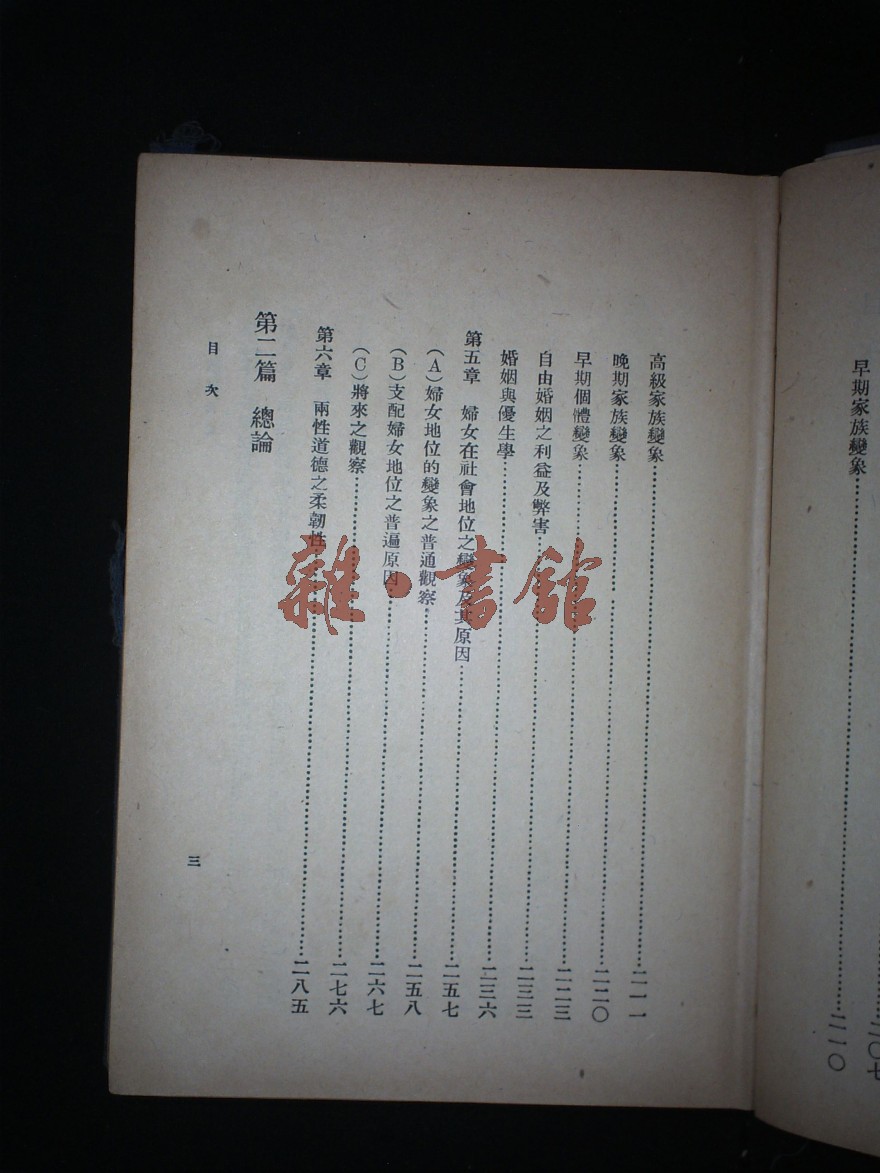 二〇七
早期家族變象……二一〇
高級家族變象……二一一
晚期家族變象……二二〇
早期個體變象……二二三
自由婚姻之利益及弊害……二三三
婚姻與優生學……二三六
第五章 婦女在社會地位之變象及其原因……二五七
(A)婦女地位的變象之普通觀察……二五八
(B)支配婦女地位之普遍原因……二六七
(C)將來之觀察……二七六
第六章 兩性道德之柔韌性……二八五
第二篇 總論
目次
三
雜·書館